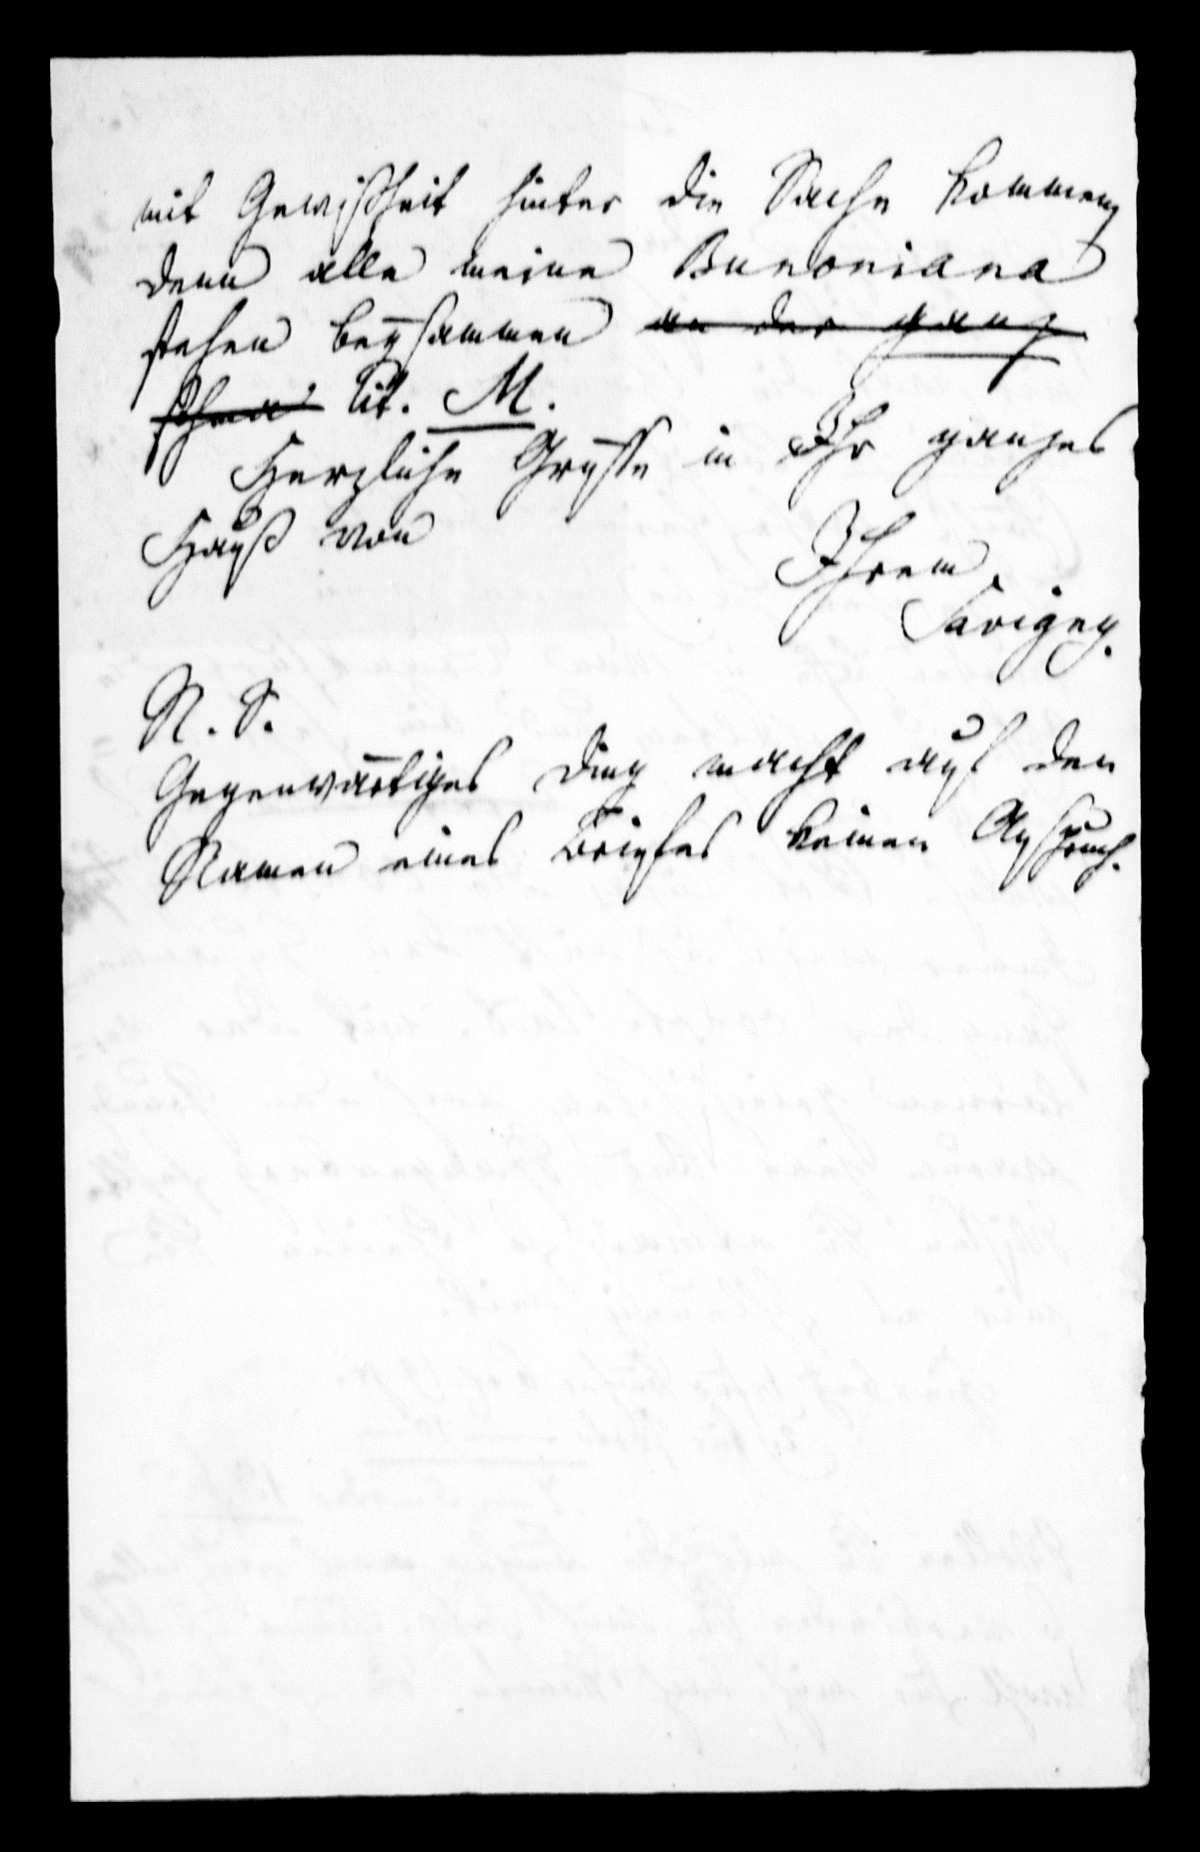 mit Gewißheit hinter die Sache kommen,
denn alle meine Bunoniana
stehen beysammen an der ganz
lit. M.
Herzliche Grüsse in Ihr ganzes
Hauß von
Ihrem
Savigny.
N. S.
Gegenwärtiges Ding macht auf den
Namen eines Briefes keinen Anspruch.